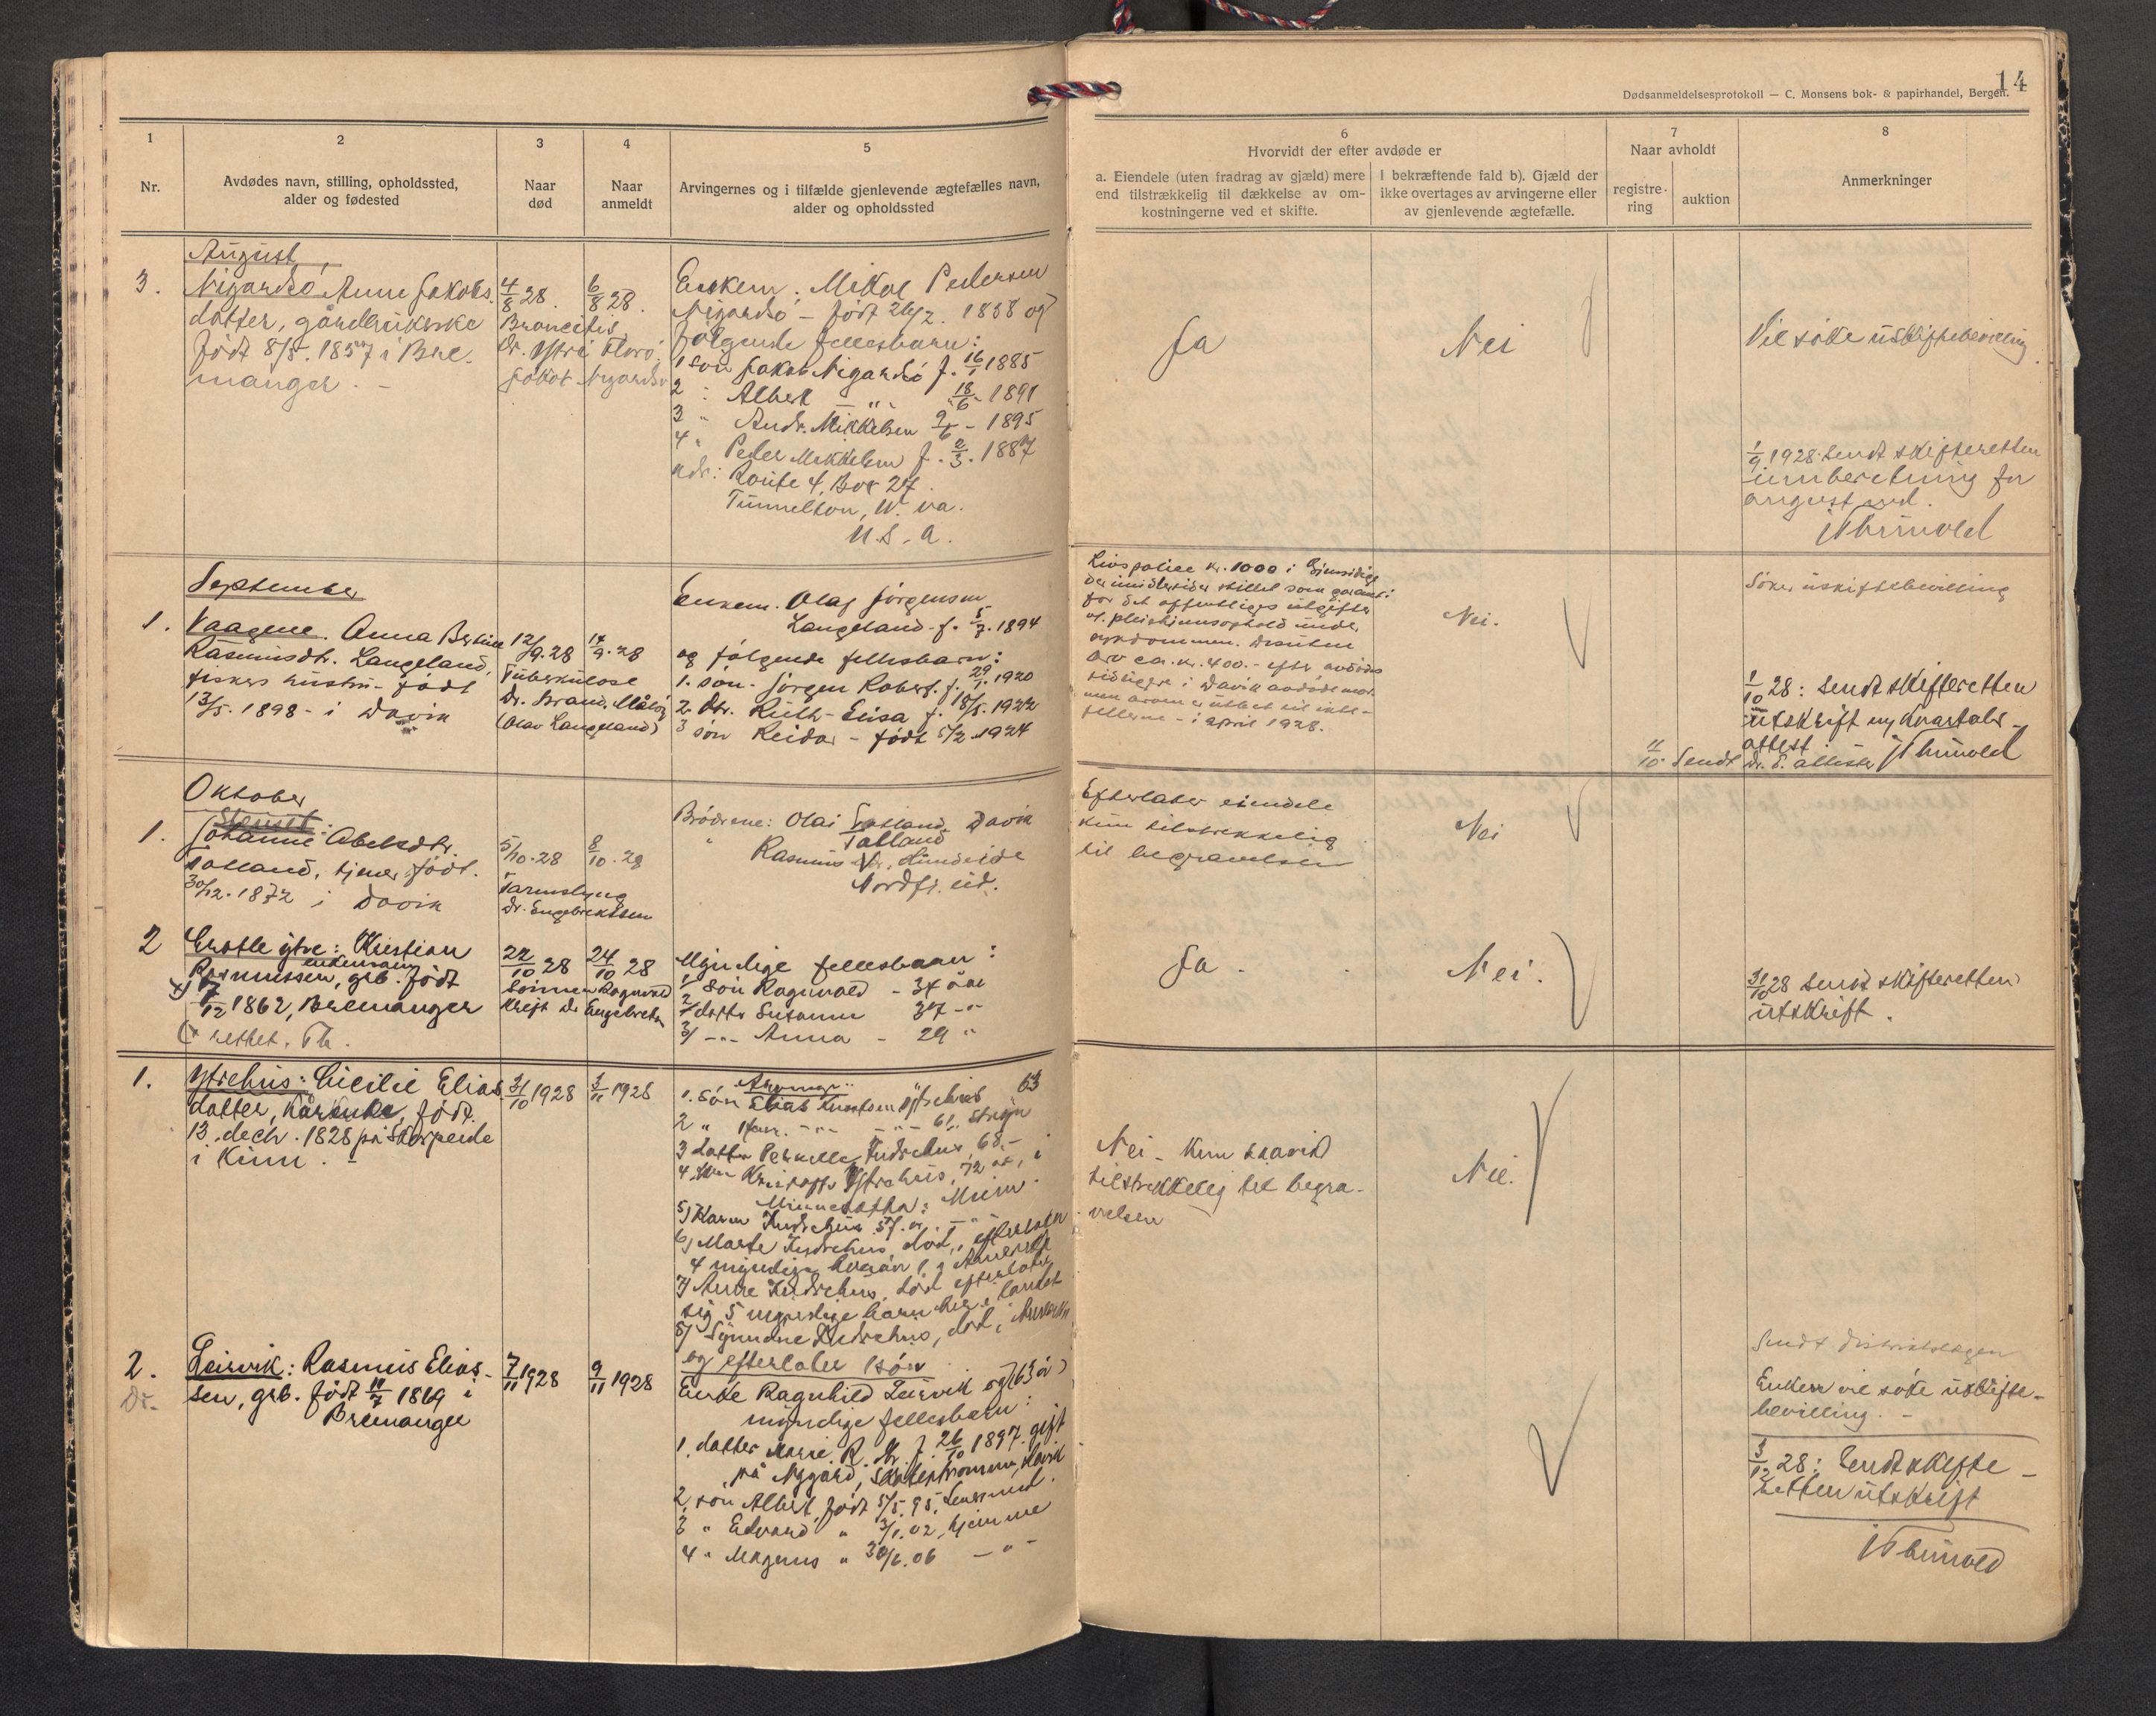 14
Dødsanmeldelsesprotokoll — C. Monsens bok- & papirhandel, Bergen.
1
2
3
4
5
Nr.
Avdødes navn, stilling, opholdssted,
alder og fødested
Naar
død
Naar
anmeldt
Arvingernes og i tilfælde gjenlevende ægtefælles navn,
alder og opholdssted
6
Hvorvidt der efter avdøde er
a. Eiendele (uten fradrag av gjæld) mere
end tilstrækkelig til dækkelse av om-
kostningerne ved et skifte.
I bekræftende fald b). Gjæld der
ikke overtages av arvingerne eller
av gjenlevende ægtefælle.
7
Naar avholdt
registre-
ring
auktion
8
Anmerkninger
August
3.
Nigardsö Anne Jakobs
datter, gårdbrukerske
født 8/5. 1857 i Bre-
manger. -
4/8 28.
6/8 28.
Enkem. Mikal Pedersen
Nigardsö - født 26/2. 1858 og
følgende fellesbarn:
1 søn Jakob Nigardsö f. 16/1 1885
2 " Albert - " - 18/6 - 1891
3 " Andr. Mikkelsen 9/6 - 1895
4 " Peder Mikkelsen f. 2/3. 1887
adr: Route 4, Box 27.
Tunnelton, W. va.
U.S.A.
Ja
Nei
Vil söke uskiftebevilling
1/9 1928 sendt skifteretten
innberetning for
august md.
September
1.
Vaagene. Anna Bertine
Rasmusdtr. Langeland,
fiskers hustru - født
13/5. 1898 - i Davik
12/9. 28
14/9. 28
Tuberkulose
(Olav Langeland)
Enkem. Olaf Jörgensen
Langeland - f. 5/7. 1894
og følgende fellesbarn:
1. søn. Jörgen Robert. f. 29/1. 1920
2. dtr. Ruth-Elisa f. 18/5. 1922
3 søn Reidar - født 5/2. 1924
Livspolice kr. 1000 i Gjensidige
for det offentliges utgifter
sykdommen. Desuten
arv ca. kr. 400.- efter avdödes
- i april 1928.
Nei.
Söker uskiftebevilling
1/10 28: sendt skifteretten
utskrift og kvartals-
attest.
11/10. Sendt
Dr. s. attester
Oktober
1.
Johanne Abelsdtr.
Totland, tjener, født.
30/12. 1872 i Davik
5/10. 28
8/10. 28
Tarmslyng
Dr. Engebrektsen
Brödrene: Olai Totland, Davik
" Rasmus
Nordfj. eid.
Efterlater eiendele
kun tilstrekkelig
til begravelsen
Nei
2
Grotle ytre: Kristian
enkemann
Rasmussen, grb. født
x) 7/12 1862, Bremanger
(x rettet. Th.
22/10 28
24/10 28
Sönnen Ragnvald
Kreft Dr Engebretsen
Myndige fellesbarn:
1/ Søn Ragnvald - 34 år
2/ datter Susanne 37 - "
3/ - " - Anna - 29 "
Ja.
Nei.
31/10 28 sendt skifteretten
utskrift.
1.
Ytrehus: Cecilie Elias
datter, kårenke, født.
13. decbr. 1828 på
i Kinn. -
31/10 1928
3/11 1928
Arvinger
1. søn Elias Knutsen Ytrehus 63
2 " - " - - " - 61. Stryn
3 datter Pernelle Indrehus, 68. -
4. søn Ytrehus, 72 år, i
Minnesotha:
5) Karen Indrehus 57. år. - " -
6) Marte Indrehus, död, efterlater
4 myndige barn i Amerika
7) Anne Indrehus, död efterlater
sig 5 myndige barn her i landet
8) Synneve Indrehus, död, i Amerika
og efterlater 1 søn
Nei - Kun saavidt
tilstrekkelig til begra-
velsen
Nei.
2.
Dr.
Leirvik: Rasmus Elias-
sen, grb. født 11/7 1869 i
Bremanger
7/11 1928
9/11 1928
Enke Ragnhild Leirvik og (63 år)
myndige fellesbarn:
1. datter Marie R. dtr. f. 26/10 1897. gift
på Nygård, Skatestrommen, Davik
2. søn Albert, født 5/5. 95.
3 " Edvard " 3/1. 02, hjemme
4 " Magnus " 30/6. 06 - " -
Sendt distriktslægen
Enken vil söke uskifte-
bevilling. -
3/12 28: Sendt skifte-
retten utskrift